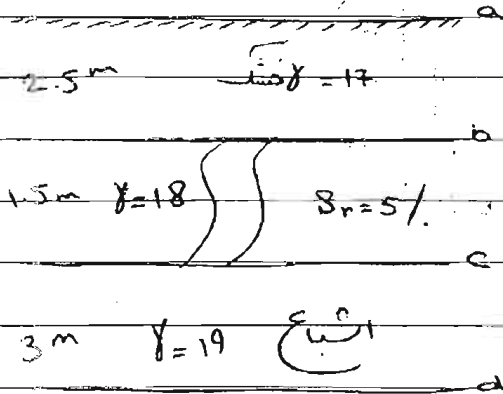 a
2.5 m خشک γ = 17
b
1.5 m γ = 18 Sr = 5 %.
c
3 m γ = 19 اشباع
d